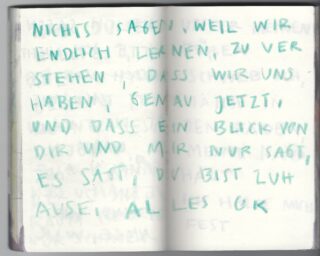 NICHTS SAGEN, WEIL WIR
ENDLICH LERNEN, ZU VER
STEHEN, DASS WIR UNS
HABEN, GENAU JETZT,
UND DASS EIN BLICK VON
DIR UND MIR NUR SAGT,
ES SATT, DU BIST ZUH
AUSE, ALLES OK
FEST